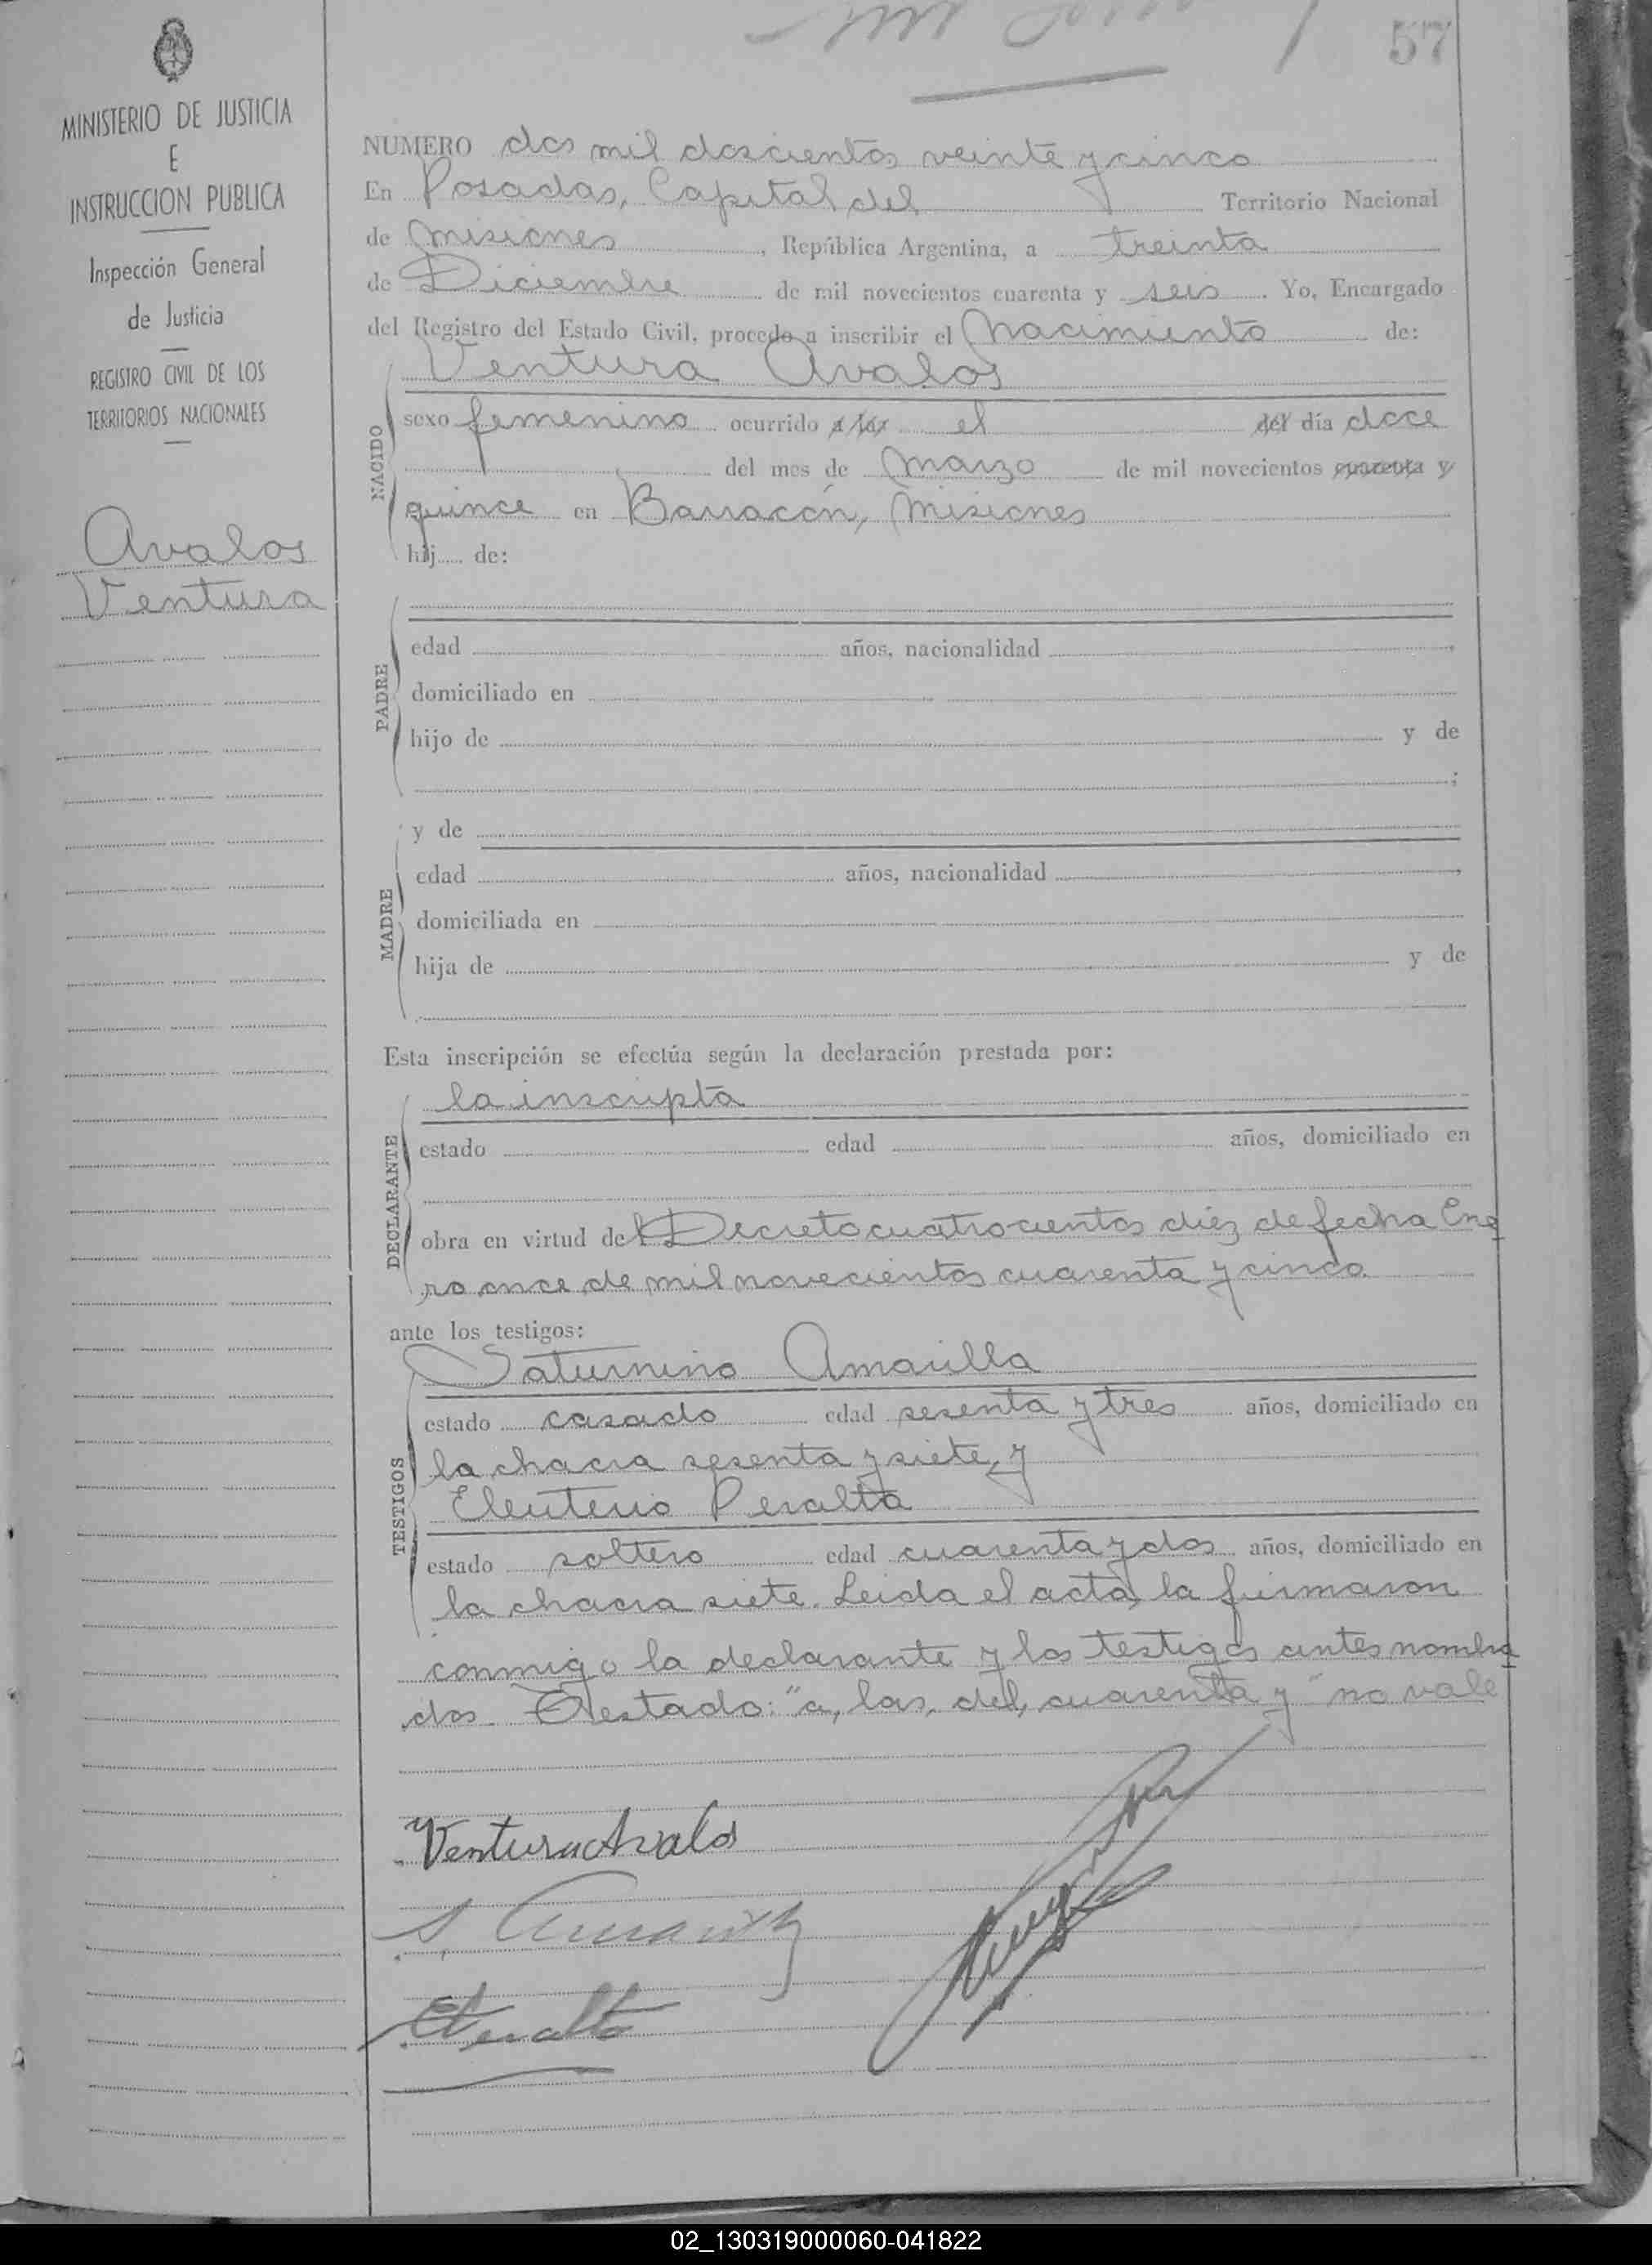 57
MINISTERIO DE JUSTICIA
E
INSTRUCCION PUBLICA
Inspección General
de Justicia
REGISTRO CIVIL DE LOS
TERRITORIOS NACIONALES
Avalos
Ventura
NUMERO dos mil doscientos veinte y cinco
En Posadas, Capital del Territorio Nacional
de Misiones, República Argentina, a treinta
de Diciembre de mil novecientos cuarenta y seis. Yo, Encargado
del Registro del Estado Civil, procedo a inscribir el Nacimiento de:
Ventura Avalos
NACIDO
sexo femenino ocurrido a las el del día doce
del mes de Marzo de mil novecientos cuarenta y
quince en Barracón, Misiones
hij de:
PADRE
edad años, nacionalidad
domiciliado en
hijo de y de
;
MADRE
y de
edad años, nacionalidad
domiciliada en
hija de y de
Esta inscripción se efectúa según la declaración prestada por:
DECLARANTE
la inscripta
estado edad años, domiciliado en
obra en virtud del Decreto cuatrocientos diez de fecha Ene
ro once de mil novecientos cuarenta y cinco.
ante los testigos:
TESTIGOS
Saturnino Amarilla
estado casado edad sesenta y tres años, domiciliado en
la chacra sesenta y siete, y
Eleuterio Peralta
estado soltero edad cuarenta y dos años, domiciliado en
la chacra siete. Leida el acta, la firmaron
conmigo la declarante y los testigos antes nombra
dos. Testado: "a, las, del, cuarenta y" no vale
Ventura Avalos
S. Amarilla
E Peralta
02_130319000060-041822